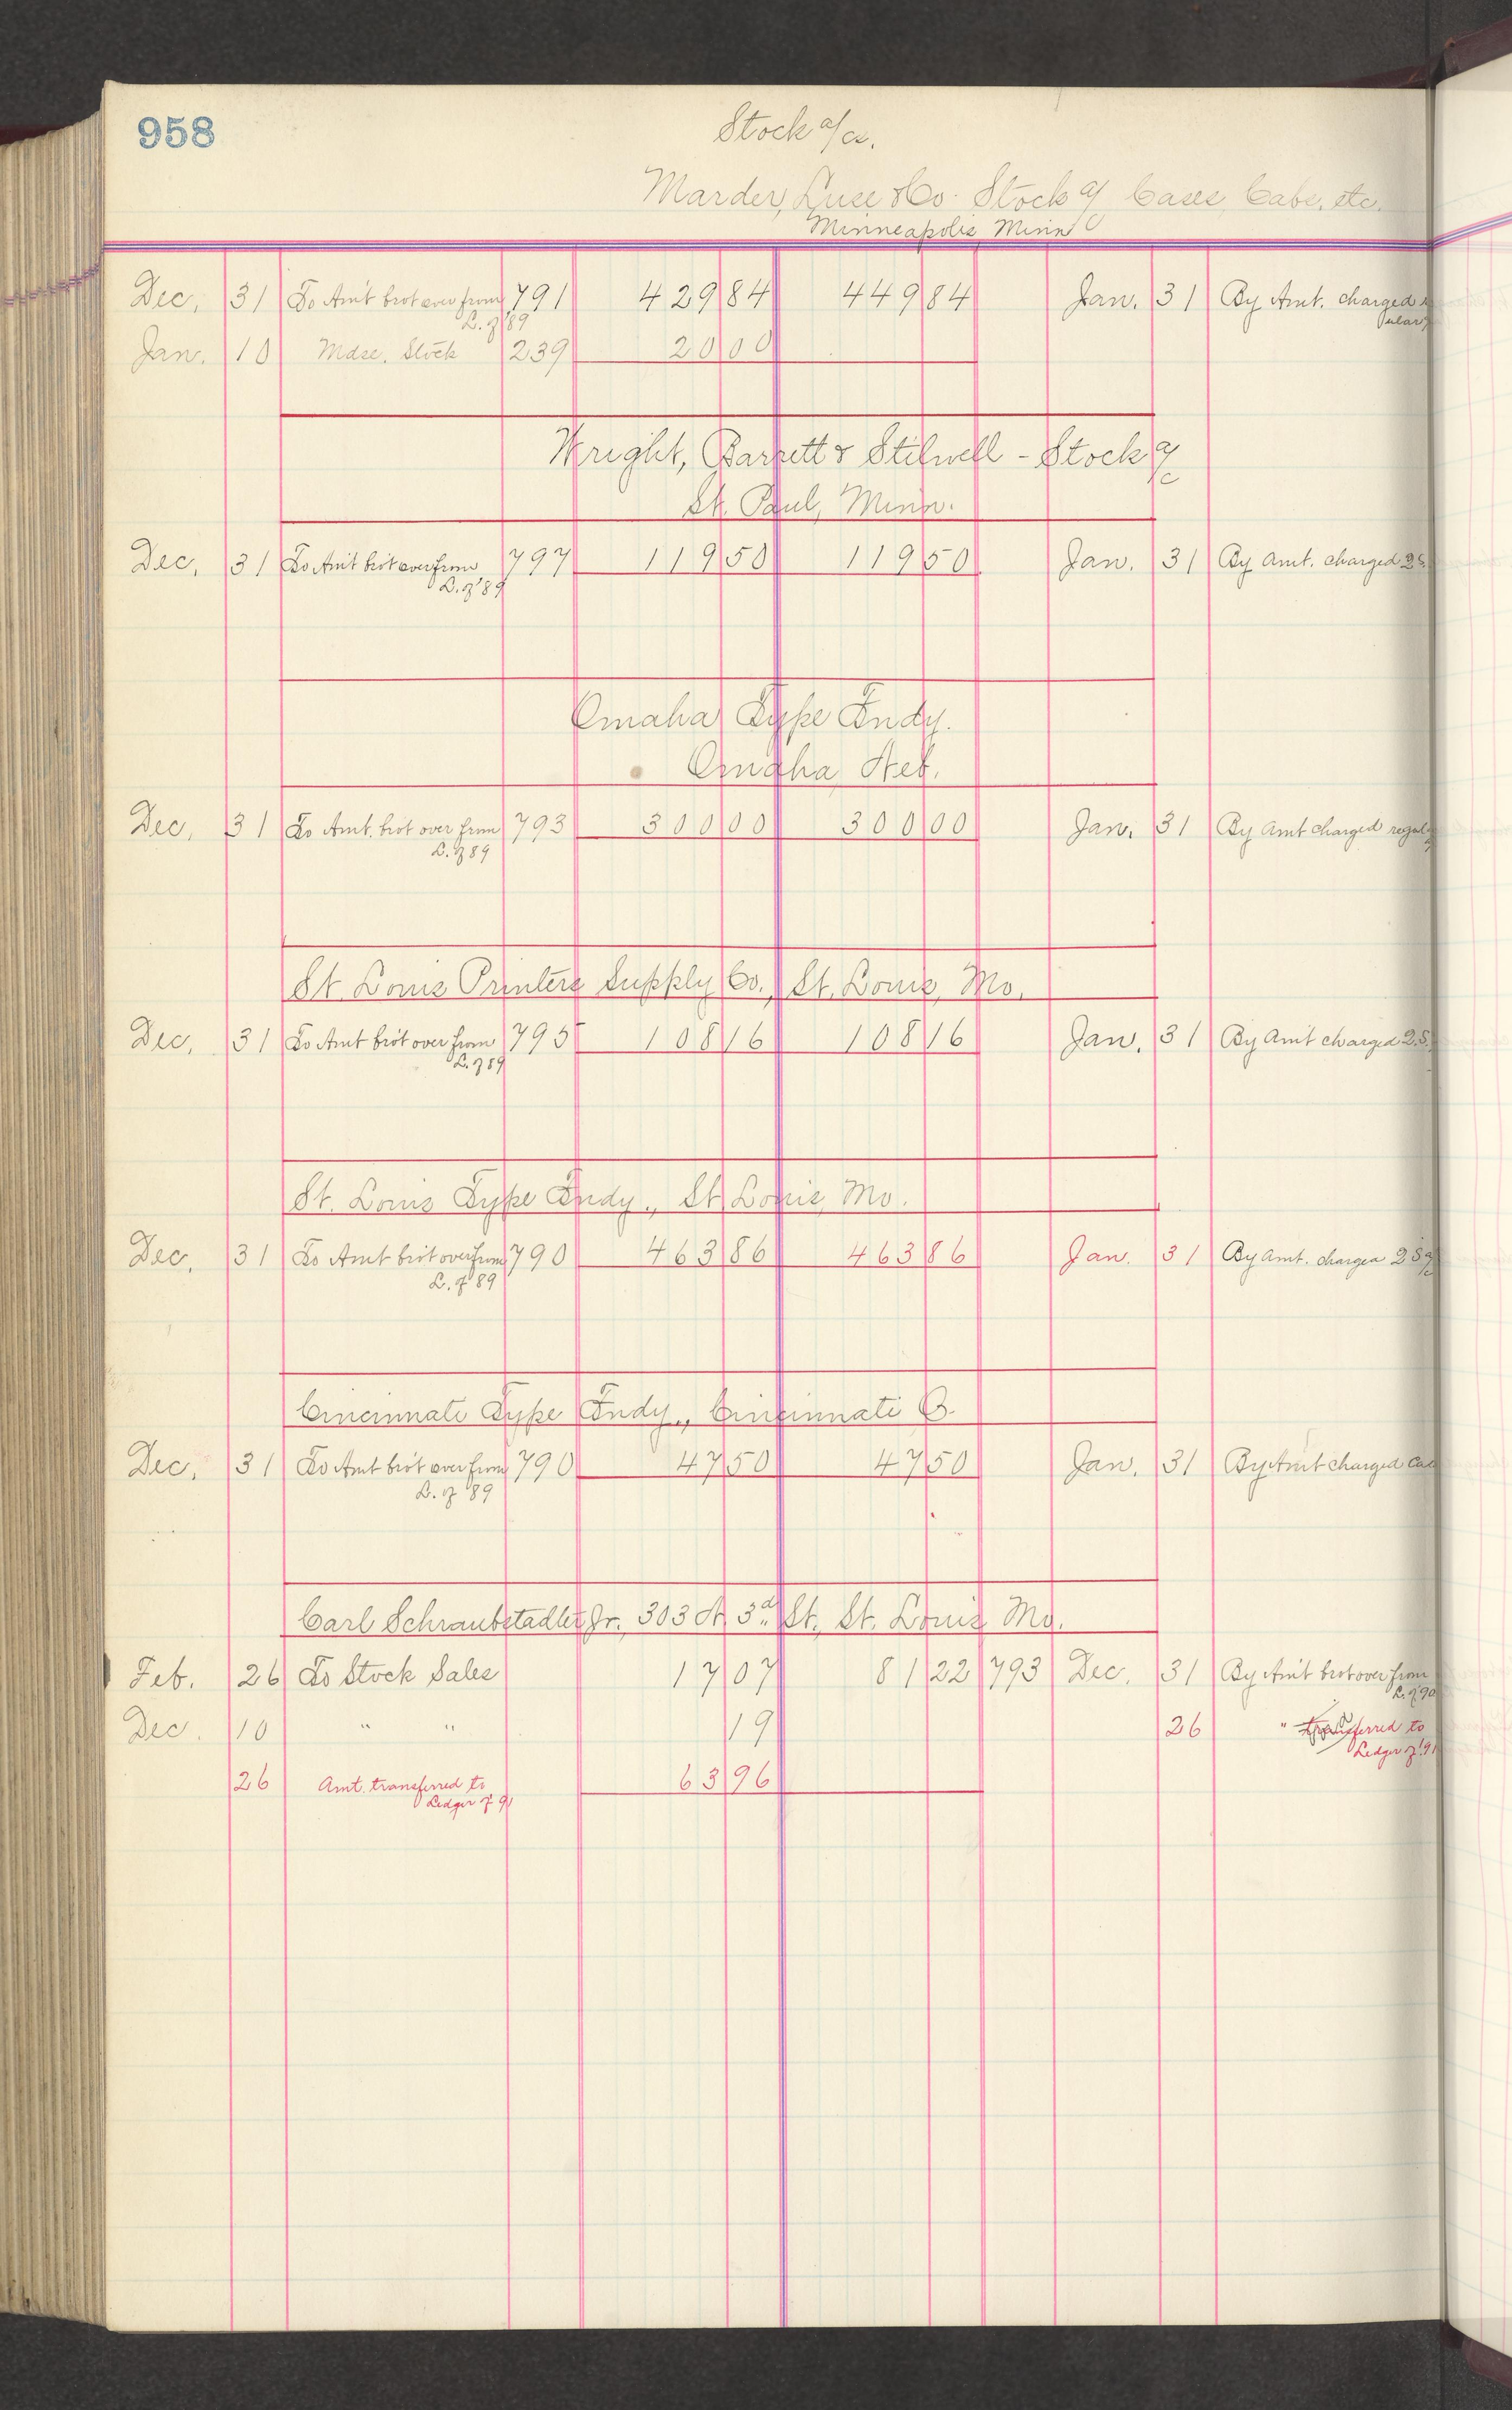 958
Stock a/cs.
Marder, Luse & Co. Stock a/c Cases, Cabs, etc.
Minneapolis Minn
Dec. 31 To Am't brot over from 791 429 84 449 84 Jan. 31 By Amt. charged
L. of '89
Jan. 10 Mdse. Stock 239 20 00
Wright, Barrett & Stilwell - Stock a/c
St. Paul, Minn.
Dec. 31 To Am't bro't over from 797 119 50 119 50 Jan. 31 By Amt. charged 2 S.
L. of '89
Omaha Type Fndy.
Omaha, Neb.
Dec. 31 To Amt. bro't over from 793 300 00 300 00 Jan. 31 By Amt charged
L. of 89
St. Louis Printers Supply Co., St. Louis, Mo.
Dec. 31 To Amt bro't over from 795 108 16 108 16 Jan. 31 By Am't charged 2.S.
L. of 89
St. Louis Type Fndy., St. Louis, Mo.
Dec. 31 To Amt bro't over from 790 463 86 463 86 Jan. 31 By Amt. charged 2 S a/c
L. of 89
Cincinnati Type Fndy., Cincinnati O.
Dec. 31 To Amt bro't over from 790 47 50 47 50 Jan. 31 By Am't charged
L. of 89
Carl Schraubstadter Jr., 303 N. 3d St., St. Louis Mo.
Feb. 26 To Stock Sales 17 07 81 22 793 Dec. 31 By Am't brot over from
L. of 90
Dec. 10 " " 19 26 " transferred to
Ledger of '91
26 Amt. transferred to 63 96
Ledger of 91